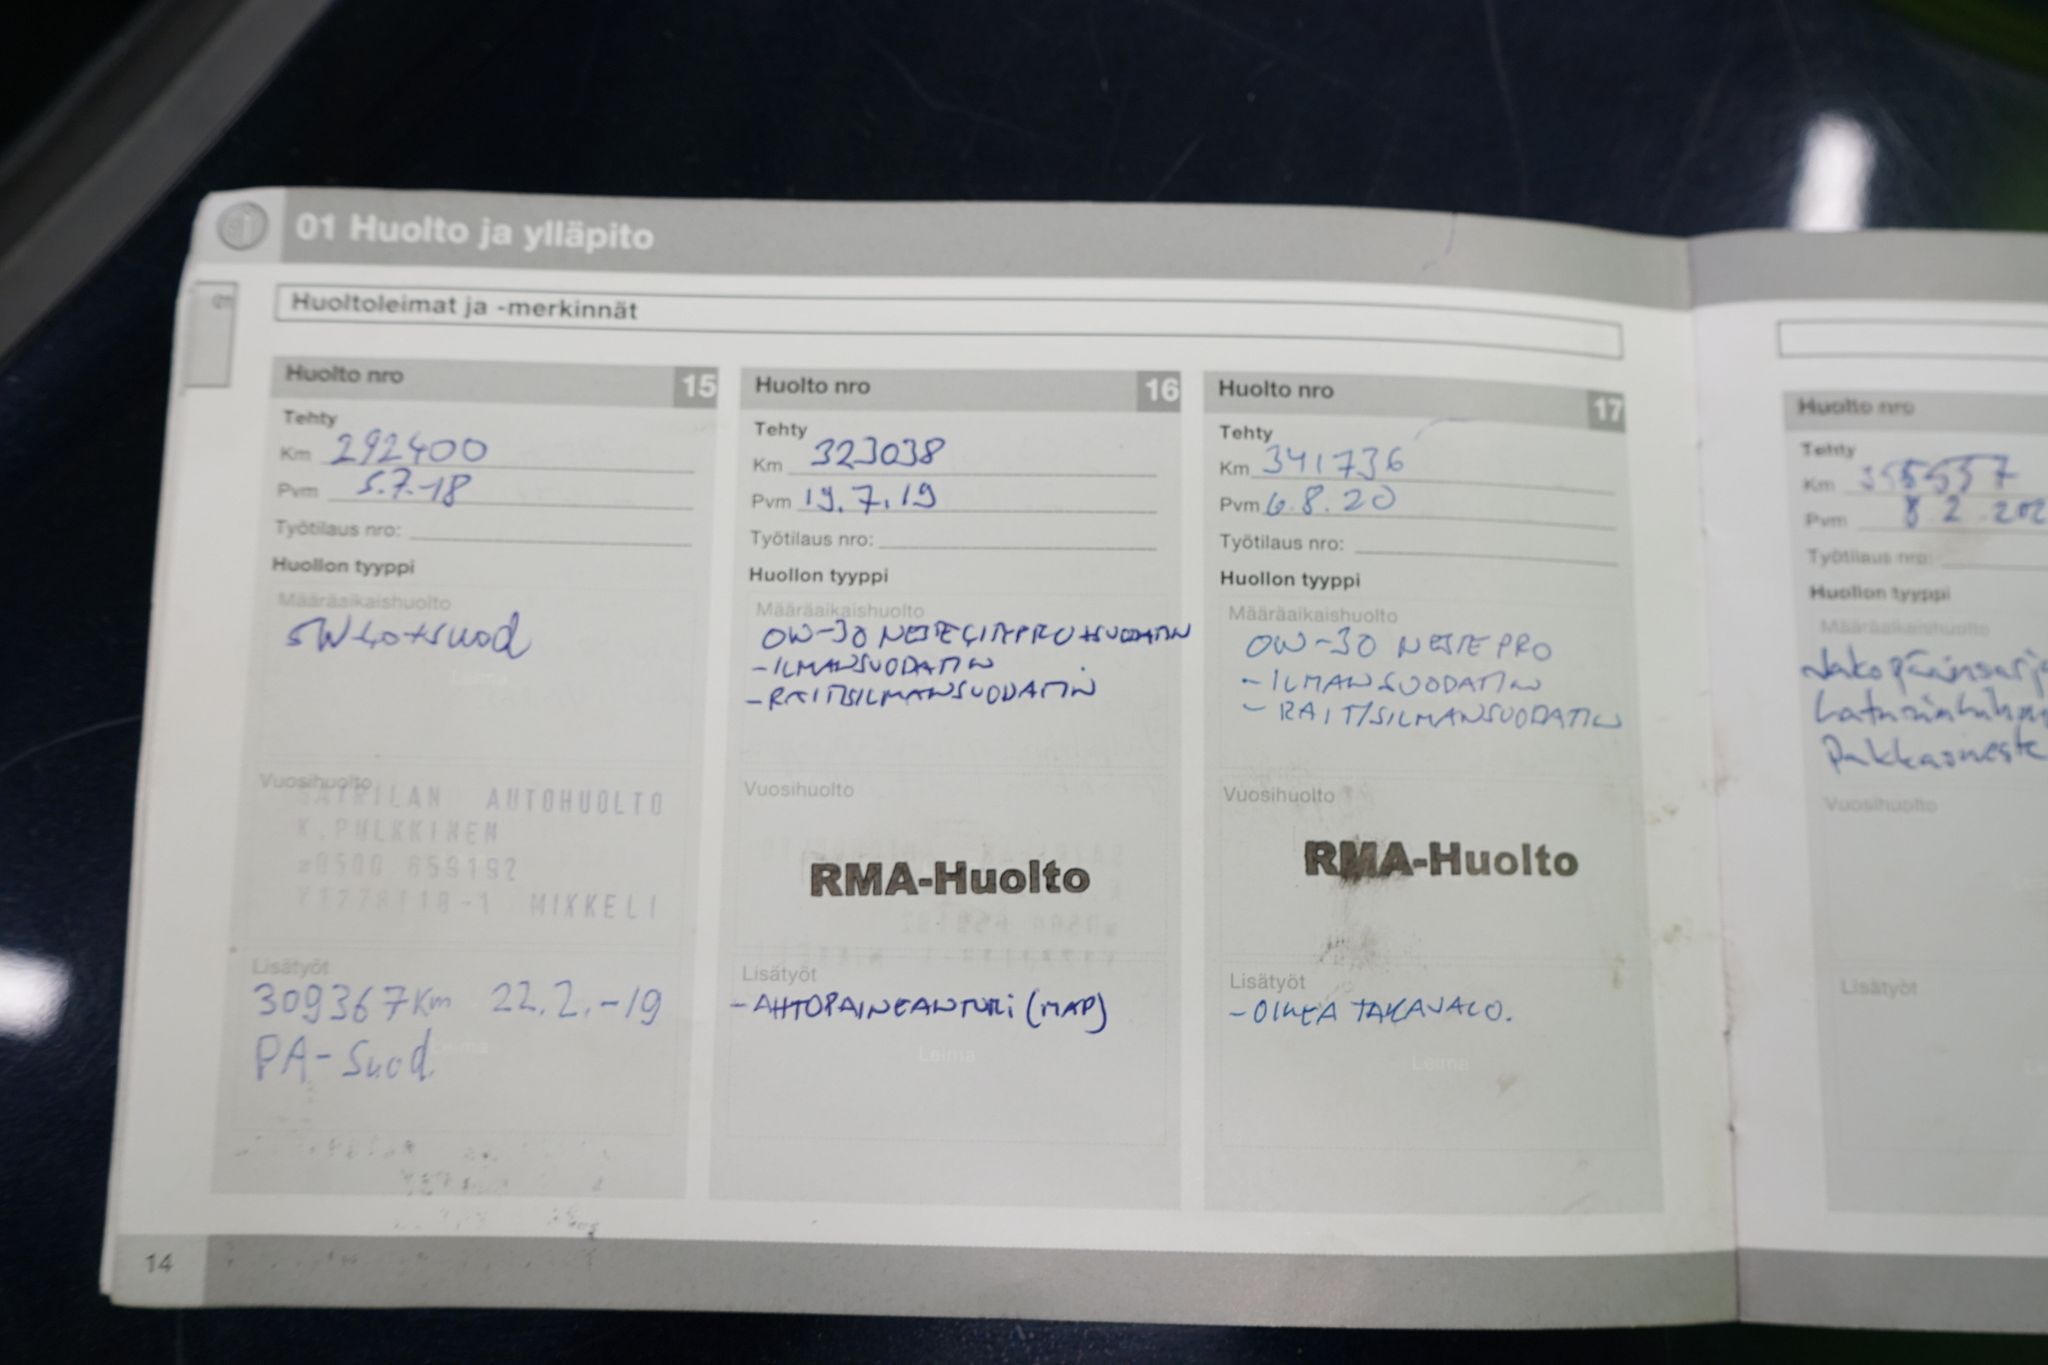 01 Huolto ja ylläpito
01
Huoltoleimat ja -merkinnät
Huolto nro 15
Tehty
Km 292400
Pvm 5.7.-18
Työtilaus nro:
Huollon tyyppi
Määräaikaishuolto
5W40+suod
Leima
Vuosihuolto
AUTOHUOLTO
K.PULKKINEN
0500 659192
MIKKELI
Lisätyöt
309367Km 22.2.-19
PA-Suod.
Leima
Huolto nro 16
Tehty
Km 323038
Pvm 19.7.19
Työtilaus nro:
Huollon tyyppi
Määräaikaishuolto
0W-30 +SUODATIN
-ILMANSUODATIN
-RAITISILMANSUODATIN
Vuosihuolto
RMA-Huolto
Lisätyöt
-AHTOPAINEANTURI (MAP)
Leima
Huolto nro 17
Tehty
Km 341736
Pvm 6.8.20
Työtilaus nro:
Huollon tyyppi
Määräaikaishuolto
0W-30 NESTE PRO
-ILMANSUODATIN
-RAITISILMANSUODATIN
Vuosihuolto
RMA-Huolto
Lisätyöt
-OIKEA TAKAVALO.
Leima
14
Huolto nro
Tehty
Km
Pvm 8.2.202
Työtilaus nro:
Huollon tyyppi
Määräaikaishuolto
Jakopäänsarja
Pakkasneste
Vuosihuolto
Lisätyöt